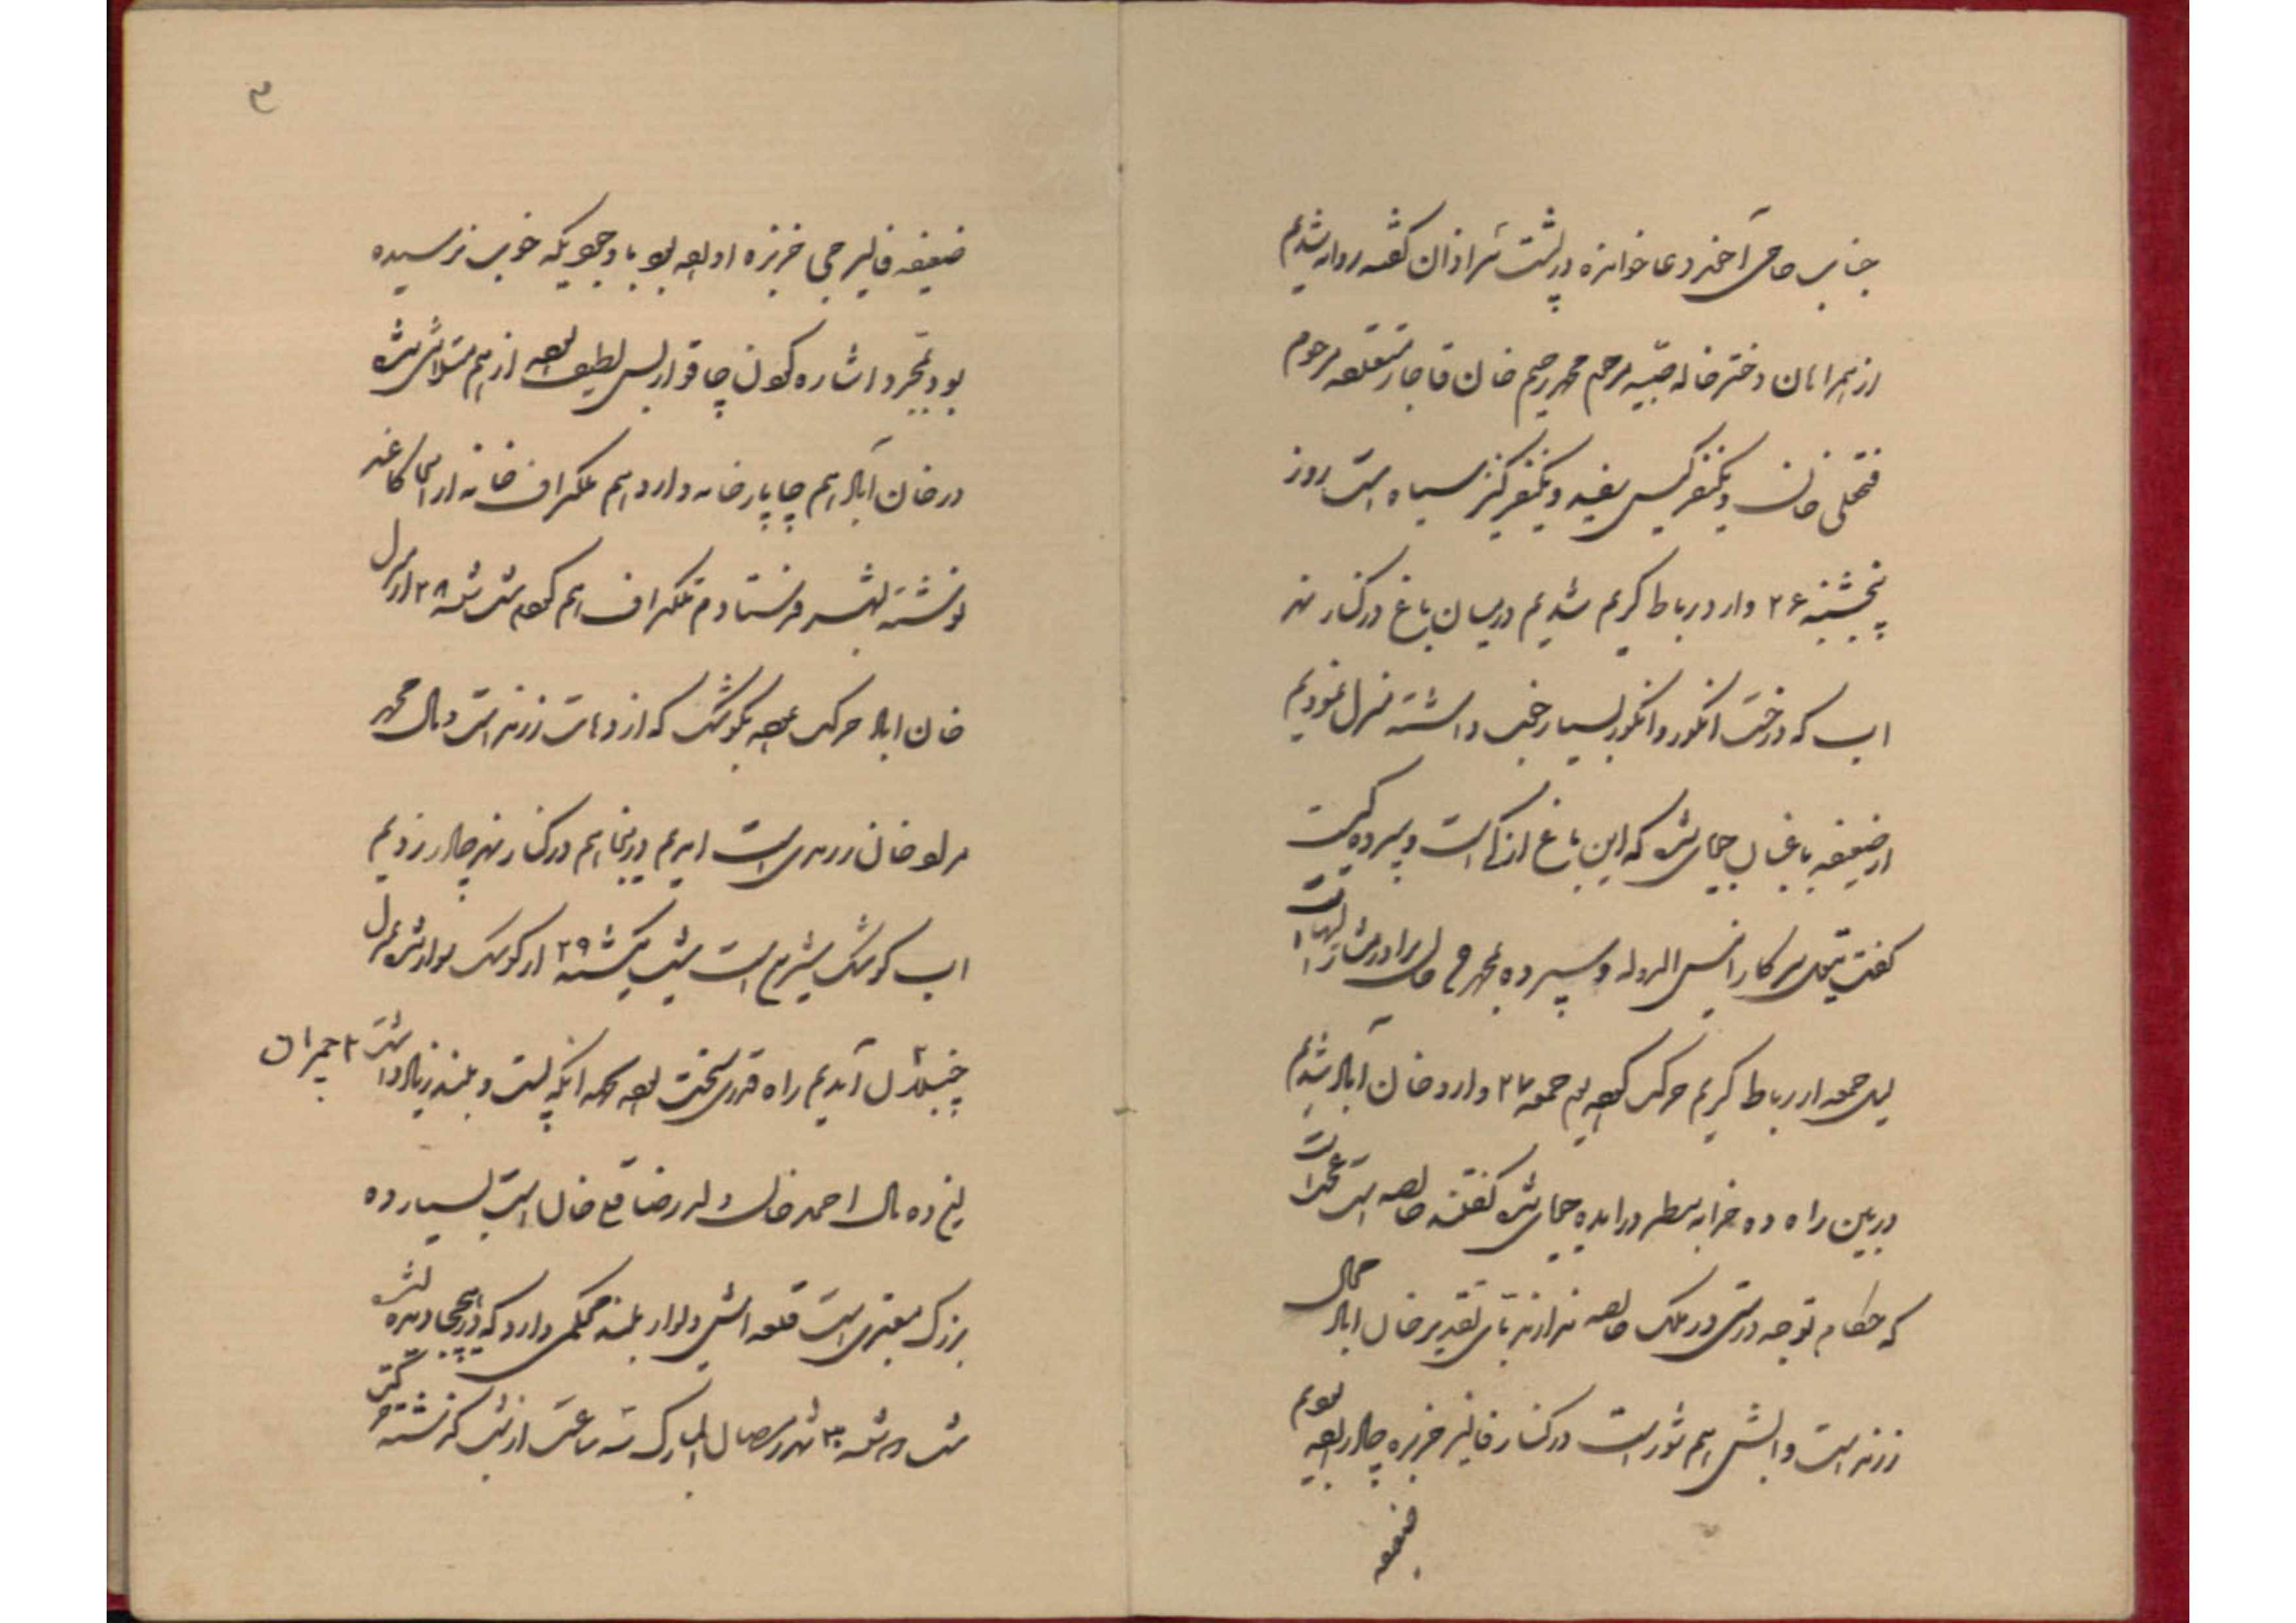 جناب حاجی آخوند دعا خوانده در پشت سر اذان گفته روانه شدیم
از همراهان دختر خاله صبیه مرحوم محمد رحیم خان قاجار متعلقه مرحوم
فتحعلی خان و یکنفر گیس سفید و یکنفر کنیز سیاه است روز
پنجشنبه ۲۶ وارد رباط کریم شدیم در میان باغ در کنار نهر
اب که درخت انگور و انگور بسیار خوب داشته منزل نمودیم
از ضعیفه باغبان جویا شد که این باغ از کیست و سپرده کیست
گفت تیول سرکار انیس الدوله و سپرده بمحمد خان برادر ایشان است
لیل جمعه از رباط کریم حرکت کرده یوم جمعه ۲۷ وارد خان آباد شدیم
در بین راه ده خرابه بنظر در امده جویا شده گفتند خالصه است
که حکام توجه درستی در ملک خالصه ندارند باری خان اباد مال
زرند است و ابش هم شور است در کنار فالیز خربزه چادر زده بودیم
ضعیفه
۳
ضعیفه فالیزچی خربزه اورده بود با وجودیکه خوب نرسیده
بود بمجرد اشاره کردن چاقو از بس لطیف بود از هم متلاشی شد
در خان آباد هم چاپارخانه دارد هم تلگراف خانه از انجا کاغذ
نوشته بشهر فرستادم تلگراف هم کردم شب شنبه ۲۸ از منزل
خان اباد حرکت کرده بکوشک که از دهات زرند است و مال محمد
خان زرندی است امدیم در اینجا هم در کنار نهر چادر زدیم
اب کوشک شیرین است شب یکشنبه ۲۹ از کوشک سوار شده بمنزل
آمدیم راه قدری سخت بود بجهة انکه پست و بلند زیاد داشت
این ده مال احمد خان ولد رضا قلی خان است بسیار ده
بزرگ معتبری است قلعه اش دیوار بلند محکمی دارد که در هیچ جا دیده نشد
شب دوشنبه ۳۰ شهر رمضان المبارک سه ساعت از شب گذشته حرکت